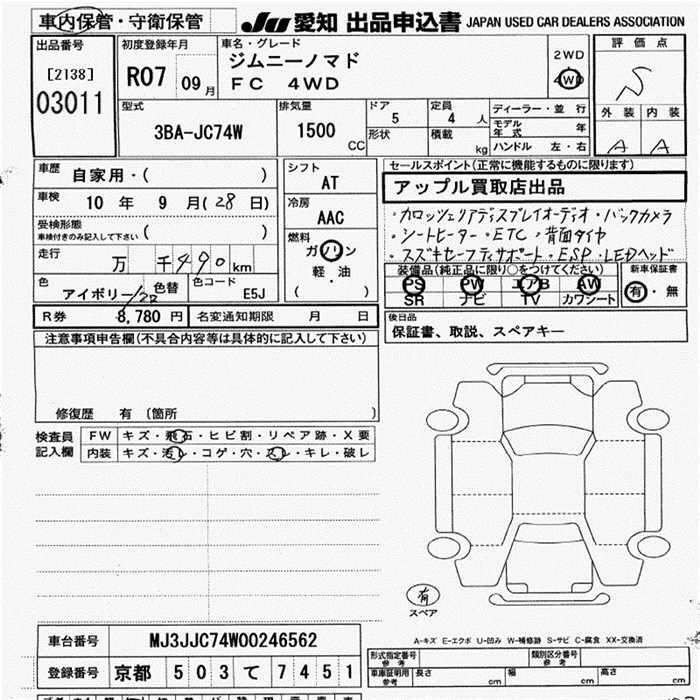 車内保管・守衛保管
JU 愛知 出品申込書 JAPAN USED CAR DEALERS ASSOCIATION
出品番号
[2138]
03011
初度登録年月
R07 09月
車名・グレード
ジムニーノマド
FC 4WD
2WD
4WD
評価点
S
外装 内装
A A
型式
3BA-JC74W
排気量
1500 CC
ドア
5
形状
定員
4 人
積載
kg
ディーラー・並行
モデル年式 年
ハンドル 左・右
車歴 自家用・( )
車検 10 年 9 月(28 日)
受検形態
車検付きのみ記入して下さい ( )
走行 万 千490 km
色 アイボリー/クロ 色替
色コード E5J
シフト
AT
冷房
AAC
燃料
ガソリン
軽・油
( )
セールスポイント(正常に機能するものに限ります)
アップル買取店出品
・カロッツェリアディスプレイオーディオ・バックカメラ
・シートヒーター・ETC・背面タイヤ
・スズキセーフティサポート・ESP・LEDヘッド
装備品(純正品に限り○をつけてください)
PS PW エアB AW
SR ナビ TV カワシート
新車保証書
有・無
R券 8,780 円
名変通知期限 月 日
後日品
保証書、取説、スペアキー
注意事項申告欄(不具合内容等は具体的に記入して下さい)
修復歴 有 (箇所 )
検査員記入欄
FW キズ・飛石・ヒビ割・リペア跡・X要
内装 キズ・汚レ・コゲ・穴・スレ・キレ・破レ
有
スペア
A-キズ E-エクボ U-凹み W-補修跡 S-サビ C-腐食 XX-交換済
車台番号 MJ3JJC74W00246562
登録番号 京都 503 て 7451
形式指定番号 参考
類別区分番号 参考
車車証明用 参考 長さ cm 幅 cm 高さ cm